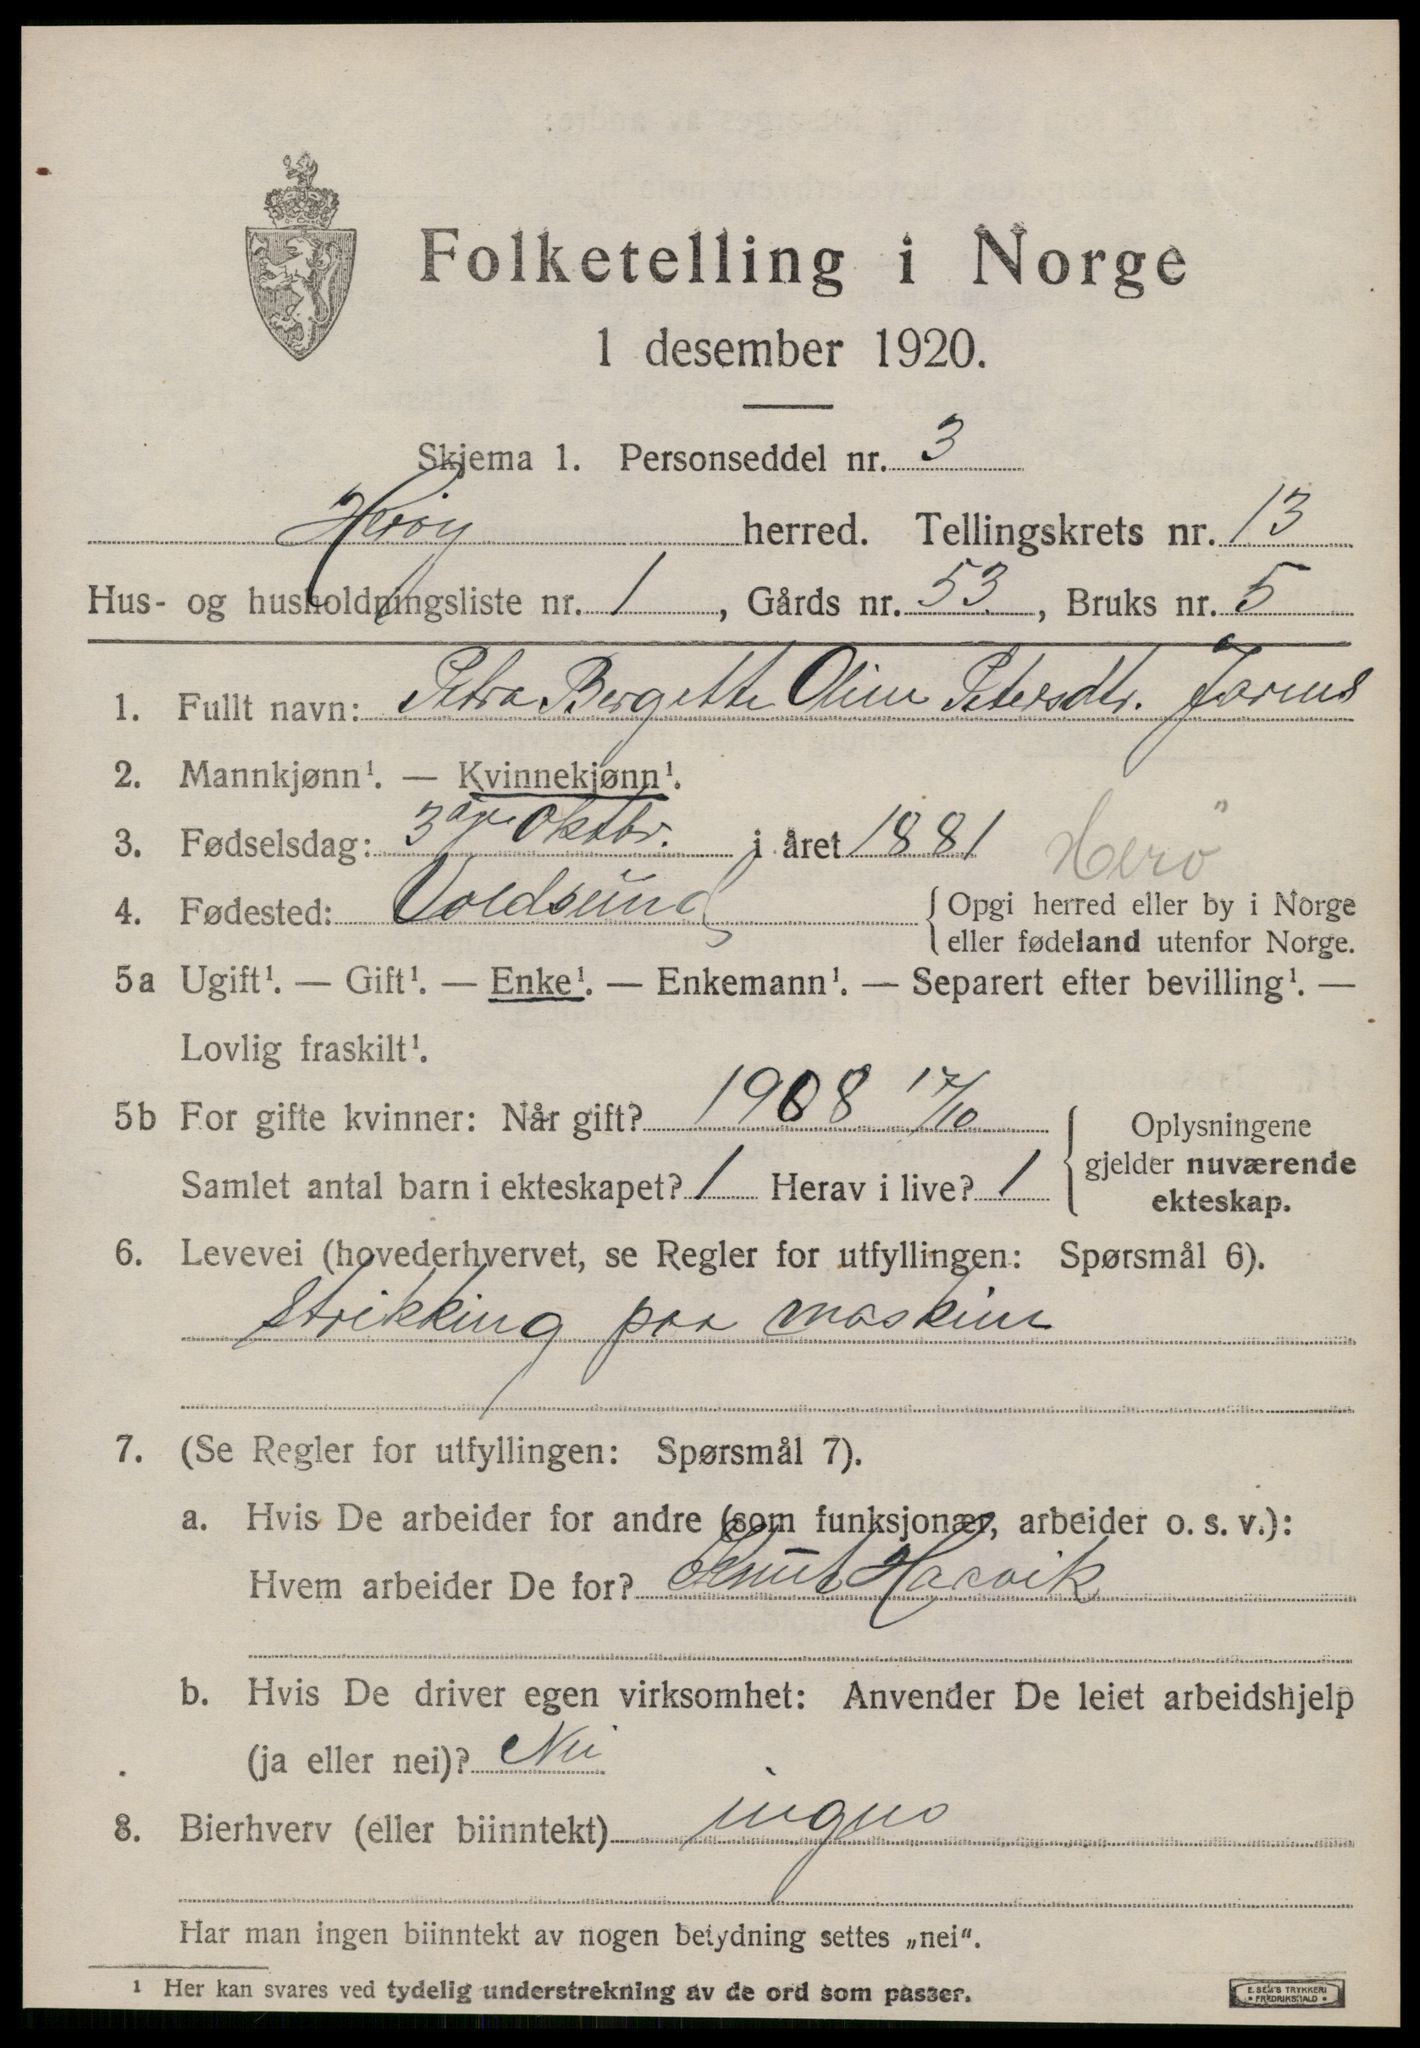 Folketelling i Norge
1 desember 1920.
Skjema 1. Personseddel nr. 3
Herøy herred. Tellingskrets nr. 13
Hus- og husholdningsliste nr. 1, Gårds nr. 53, Bruks nr. 5
1. Fullt navn: Petra Bergette Oline Petersdtr. Jarnes
2. Mannkjønn¹. — Kvinnekjønn¹.
3. Fødselsdag: 3dje Oktbr. i året 1881 Herö
4. Fødested: Voldsund { Opgi herred eller by i Norge
eller fødeland utenfor Norge.
5a Ugift¹. — Gift¹. — Enke¹. — Enkemann¹. — Separert efter bevilling¹. —
Lovlig fraskilt¹.
5b For gifte kvinner: Når gift? 1908 17/10
Samlet antal barn i ekteskapet? 1 Herav i live? 1
Oplysningene
gjelder nuværende
ekteskap.
6. Levevei (hovederhvervet, se Regler for utfyllingen: Spørsmål 6).
Strikking paa maskine
7. (Se Regler for utfyllingen: Spørsmål 7).
a. Hvis De arbeider for andre (som funksjonær, arbeider o. s. v.):
Hvem arbeider De for? Knut
b. Hvis De driver egen virksomhet: Anvender De leiet arbeidshjelp
(ja eller nei)? Nei
8. Bierhverv (eller biinntekt)
Har man ingen biinntekt av nogen betydning settes „nei“.
¹ Her kan svares ved tydelig understrekning av de ord som passer.
E. SEM'S TRYKKERI
• FREDRIKSHALD •